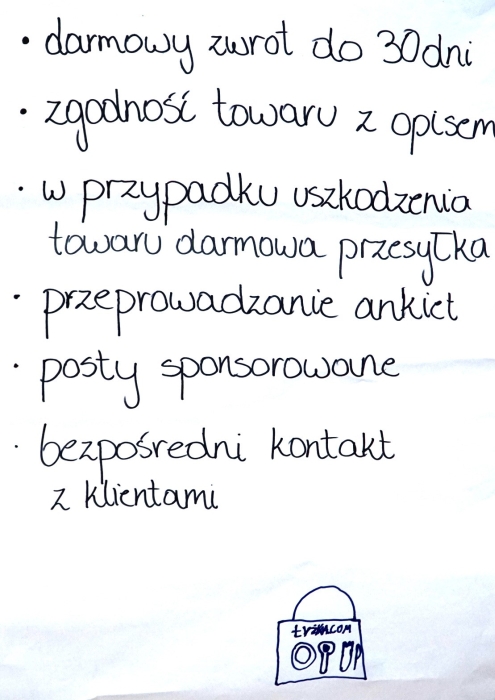 • darmowy zwrot do 30dni
• zgodność towaru z opisem
• w przypadku uszkodzenia
towaru darmowa przesyłka
• przeprowadzanie ankiet
• posty sponsorowane
• bezpośredni kontakt
z klientami